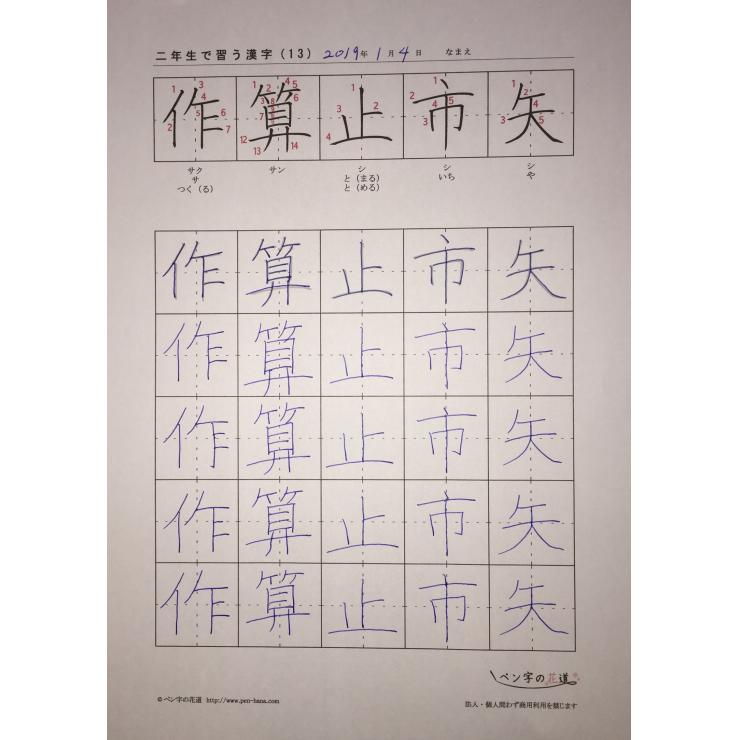 二年生で習う漢字(13) 2019年 1月 4日 なまえ
作 算 止 市 矢
サク サン シ シ シ
サ と(まる) いち や
つく(る) と(める)
作 算 止 市 矢
作 算 止 市 矢
作 算 止 市 矢
作 算 止 市 矢
作 算 止 市 矢
ペン字の花道
©ペン字の花道 http://www.pen-hana.com 法人・個人問わず商用利用を禁じます